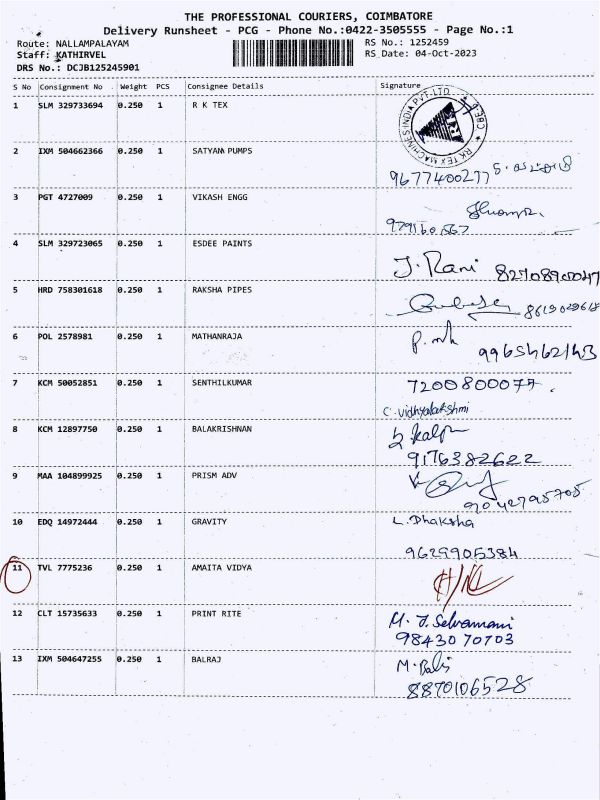 THE PROFESSIONAL COURIERS, COIMBATORE
Delivery Runsheet - PCG - Phone No.:0422-3505555 - Page No.:1
Route: NALLAMPALAYAM RS No.: 1252459
Staff: KATHIRVEL RS Date: 04-Oct-2023
DRS No.: DCJB125245901
S No Consignment No Weight PCS Consignee Details Signature
1 SLM 329733694 0.250 1 R K TEX
RK TEX MACHINES INDIA PVT.LTD. CBE-6
2 IXM 504662366 0.250 1 SATYAM PUMPS
9677400277
3 PGT 4727009 0.250 1 VIKASH ENGG
4 SLM 329723065 0.250 1 ESDEE PAINTS
J. Rani
5 HRD 758301618 0.250 1 RAKSHA PIPES
6 POL 2578981 0.250 1 MATHANRAJA
7 KCM 50052851 0.250 1 SENTHILKUMAR
7200800077.
C. Vidhyalakshmi
8 KCM 12897750 0.250 1 BALAKRISHNAN
9176382622
9 MAA 104899925 0.250 1 PRISM ADV
10 EDQ 14972444 0.250 1 GRAVITY
L. Dhaksha
9629905384
11 TVL 7775236 0.250 1 AMAITA VIDYA
12 CLT 15735633 0.250 1 PRINT RITE
M. J. Selvamani
9843070703
13 IXM 504647255 0.250 1 BALRAJ
8870106528